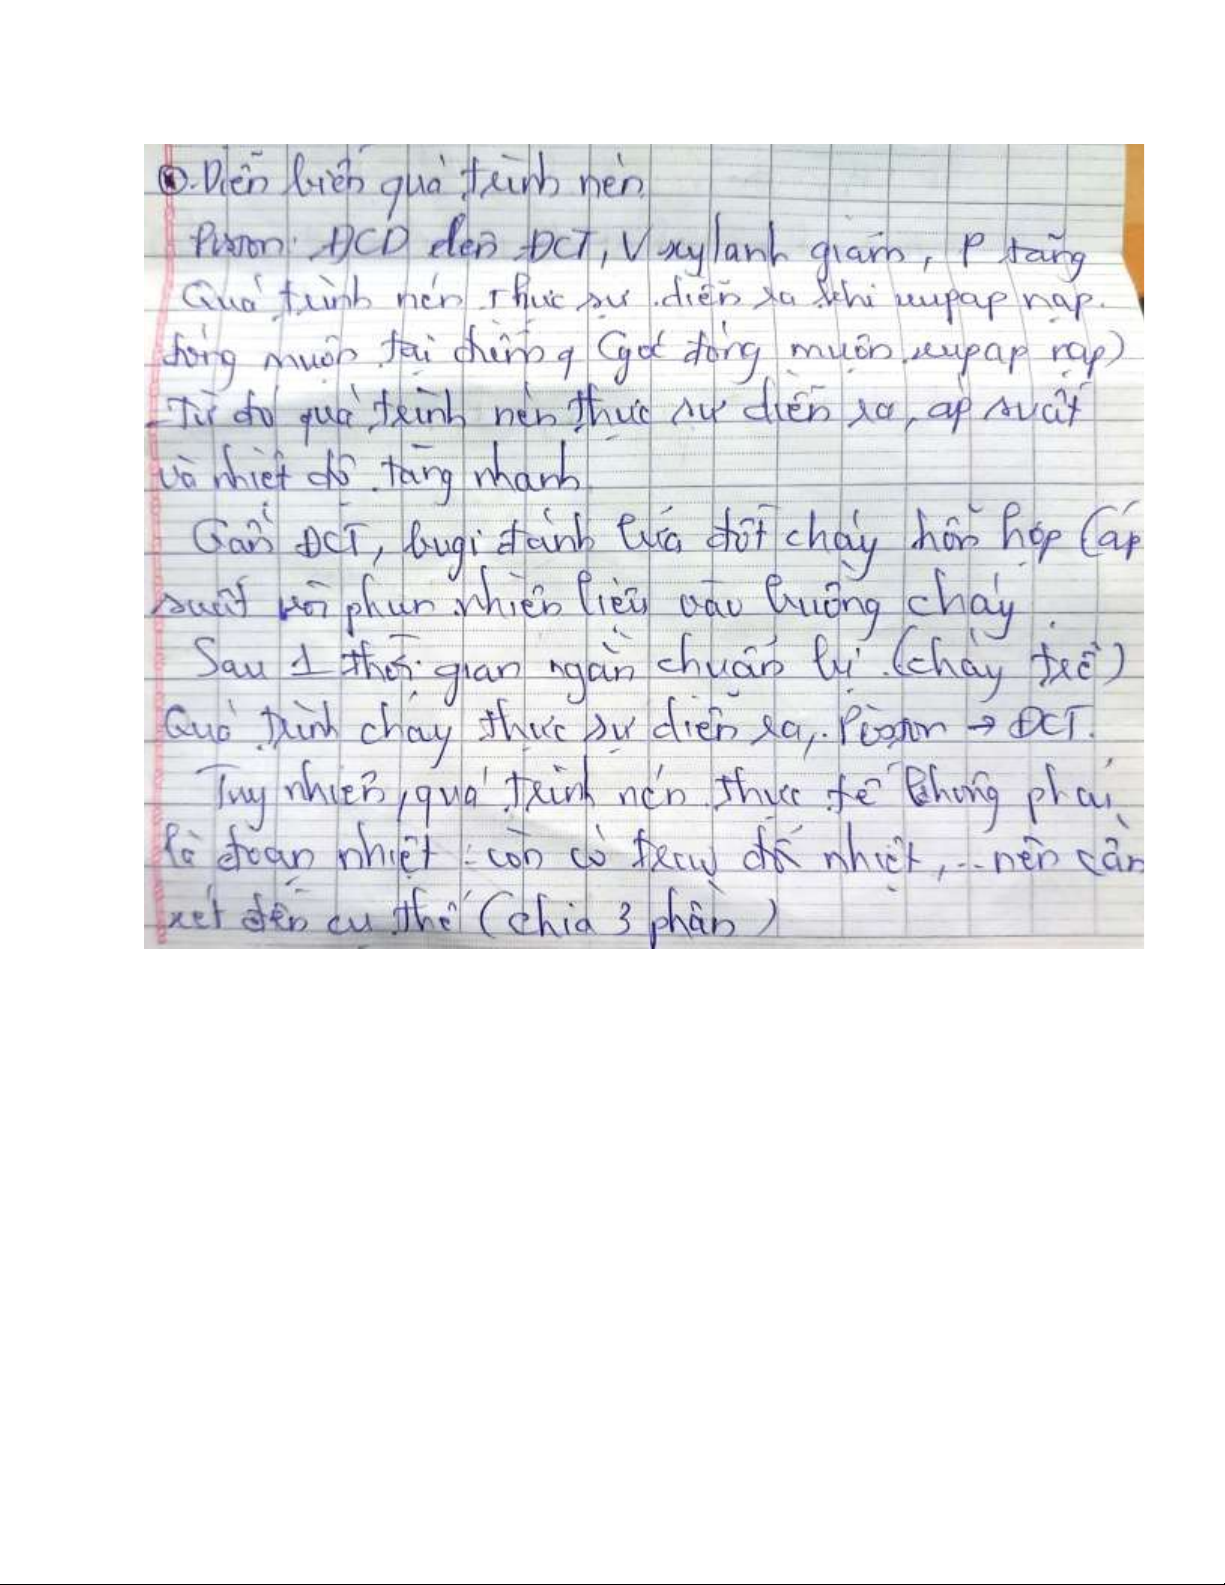 ⊛. Diễn biến quá trình nén
Piston: ĐCD đến ĐCT, V xylanh giảm, P tăng
Quá trình nén thực sự diễn ra khi xupap nạp
đóng muộn tại điểm q (góc đóng muộn xupap nạp)
Từ đó quá trình nén thực sự diễn ra, áp suất
và nhiệt độ tăng nhanh
Gần ĐCT, bugi đánh lửa đốt cháy hỗn hợp (áp
suất vòi phun nhiên liệu vào buồng cháy
Sau 1 thời gian ngắn chuẩn bị (cháy trễ)
Quá trình cháy thực sự diễn ra, Piston → ĐCT.
Tuy nhiên, quá trình nén thực tế không phải
là đoạn nhiệt: còn có trao đổi nhiệt, ... nên cần
xét đến cụ thể (chia 3 phần)